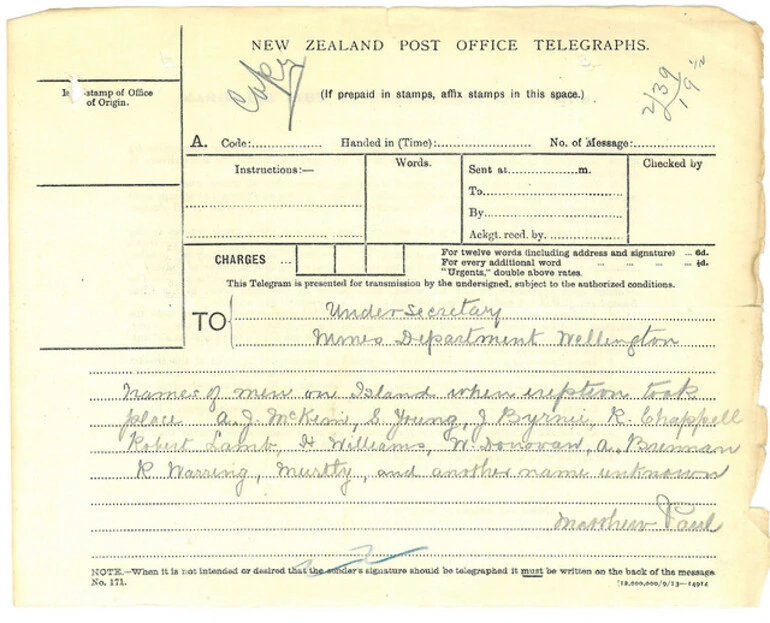 NEW ZEALAND POST OFFICE TELEGRAPHS.
Copy
(If prepaid in stamps, affix stamps in this space.)
2/39
19
stamp of Office
of Origin.
A. Code:
Handed in (Time):
No. of Message:
Instructions:—
Words.
Sent at m.
To
By
Ackgt. recd. by
Checked by
CHARGES ...
For twelve words (including address and signature) ... 6d.
For every additional word ... ... ... ... ½d.
"Urgents," double above rates.
This Telegram is presented for transmission by the undersigned, subject to the authorized conditions.
TO
Under Secretary
Mines Department Wellington
Names of men on Island when ereption took
place A. J. McKim, S. Young, J Byrne, R. Chappell
Robert Lamb, H Williams, W. Donovan, A. Brennan
R Warring, Murtty, and another name unknown
Matthew Paul
NOTE.—When it is not intended or desired that the sender's signature should be telegraphed it must be written on the back of the message.
No. 171.
[12,000,000/9/13—14914